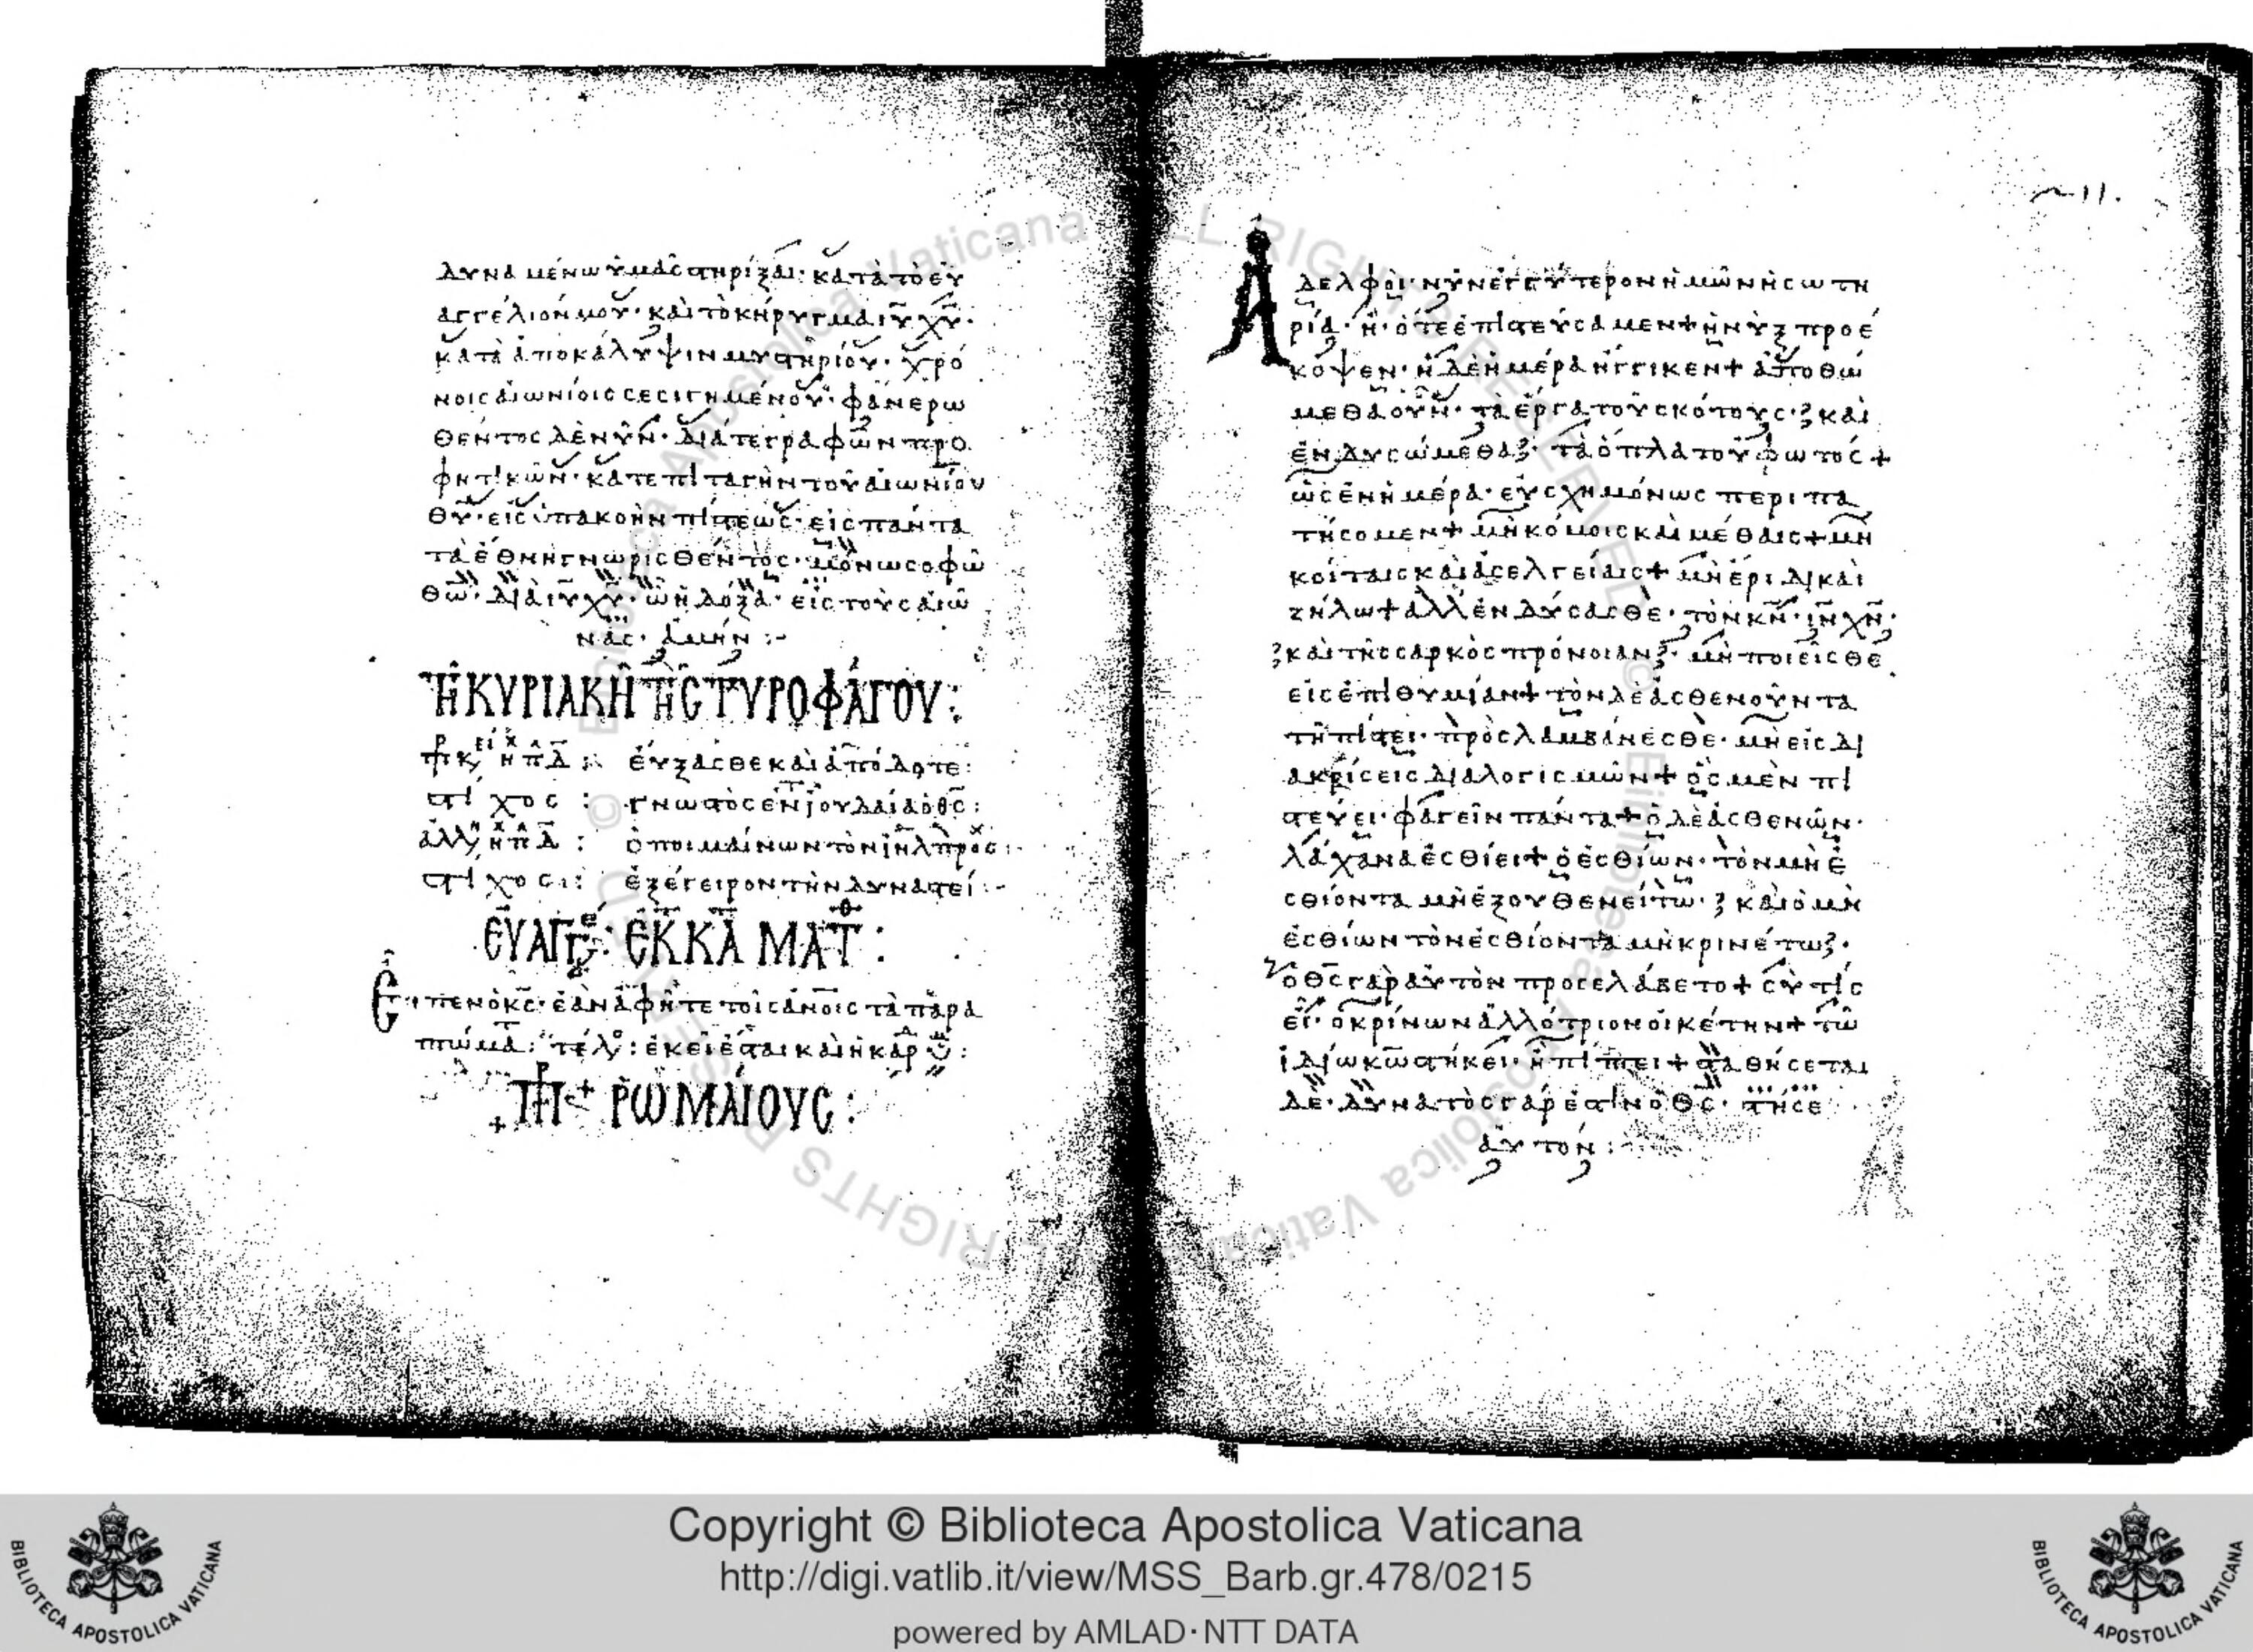 δυναμένω ὑμᾶς στηρίξαι· κατὰ τὸ εὐ
αγγέλιόν μου· καὶ τὸ κήρυγμα ιυ χυ·
κατὰ ἀποκάλυψιν μυστηρίου· χρό
νοις αἰωνίοις σεσιγημένου· φανερω
θέντος δὲ νῦν· διά τε γραφῶν προ
φητικῶν· κατ επιταγὴν τοῦ αἰωνίου
θυ· εἰς ὑπακοὴν πίστεως· εἰς πάντα
τὰ ἔθνη γνωρισθέντος· μόνω σοφῶ
θω· διὰ ιυ χυ· ὧ ἡ δόξα· εἰς τοὺς αἰῶ
νας· ἀμήν :-
ΤΗ ΚΥΡΙΑΚΗ ΤΗΣ ΤΥΡΟΦΑΓΟΥ:
εὔξασθε καὶ ἀπόδοτε:
στίχος : γνωστὸς ἐν τῆ ἰουδαία ὁ θς:
ὁ ποιμαίνων τὸν ιηλ προς:
στίχος: ἐξέγειρον τὴν δυναστεί:-
ΕΥΑΓΓΕ: ΕΚ ΚΑ ΜΑΤΘ:
Εἶπεν ὁ κς· ἐὰν ἀφῆτε τοῖς ἀνοις τὰ παρα
πτώμα: τέλος: ἐκεῖ ἔσται καὶ ἡ καρ:
ΠΡ + ΡΩΜΑΙΟΥΣ:
11.
Ἀδελφοὶ· νῦν ἐγγύτερον ἡμῶν ἡ σωτη
ρία· ἢ ὅτε ἐπιστεύσαμεν+ ἡ νὺξ προέ
κοψεν· ἡ δὲ ἡμέρα ἤγγικεν+ ἀποθώ
μεθα οὖν· τὰ ἔργα τοῦ σκότους· καὶ
ἐνδυσώμεθα· τὰ ὅπλα τοῦ φωτός+
ὡς ἐν ἡμέρα· εὐσχημόνως περιπα
τήσομεν+ μὴ κόμοις καὶ μέθαις+ μὴ
κοίταις καὶ ἀσελγείαις+ μὴ ἔριδι καὶ
ζήλω+ ἀλλ ἐνδύσασθε· τὸν κν· ιν χν·
καὶ τῆς σαρκὸς πρόνοιαν· μὴ ποιεῖσθε
εἰς ἐπιθυμίαν+ τὸν δὲ ἀσθενοῦντα
τῆ πίστει· προσλαμβάνεσθε· μὴ εἰς δι
ακρίσεις διαλογισμῶν+ ὃς μὲν πι
στεύει· φαγεῖν πάντα+ ὁ δὲ ἀσθενῶν·
λάχανα ἐσθίει+ ὁ ἐσθίων· τὸν μὴ ἐ
σθίοντα μὴ ἐξουθενείτω· καὶ ὁ μὴ
ἐσθίων τὸν ἐσθίοντα μὴ κρινέτω·
ὁ θς γὰρ αὐτὸν προσελάβετο+ σὺ τίς
εἶ· ὁ κρίνων ἀλλότριον οἰκέτην+ τῶ
ἰδίω κω στήκει· ἢ πίπτει+ σταθήσεται
δὲ· δυνατὸς γάρ ἐστιν ὁ θς· στῆσε
αὐτόν:
Copyright © Biblioteca Apostolica Vaticana
http://digi.vatlib.it/view/MSS_Barb.gr.478/0215
powered by AMLAD·NTT DATA
BIBLIOTECA APOSTOLICA VATICANA
BIBLIOTECA APOSTOLICA VATICANA